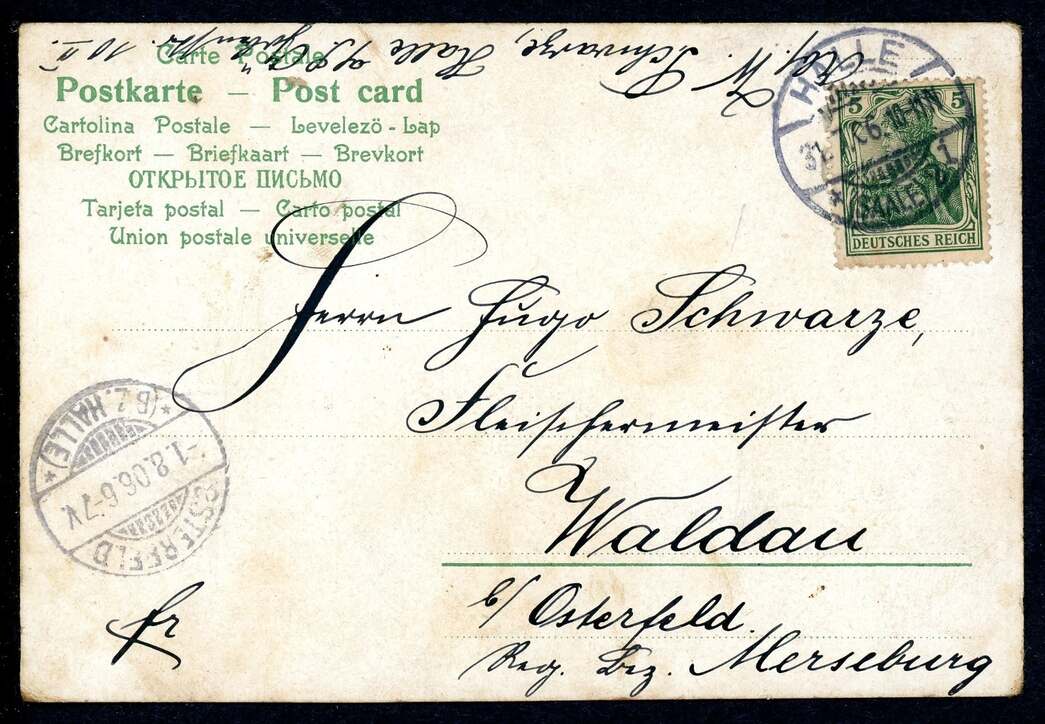 Carte Postale
Postkarte — Post card
Cartolina Postale — Levelezö - Lap
Brefkort — Briefkaart — Brevkort
ОТКРЫТОЕ ПИСЬМО
Tarjeta postal — Carto postal
Union postale universelle
W. Schwarze, Halle
HALLE
(SAALE)
5 5
DEUTSCHES REICH
Herrn Hugo Schwarze,
Fleischermeister
Waldau
b/ Osterfeld
Reg. Bez. Merseburg
fr
OSTERFELD
-1.8.06.6-7V.
*(BZ. HALLE)*